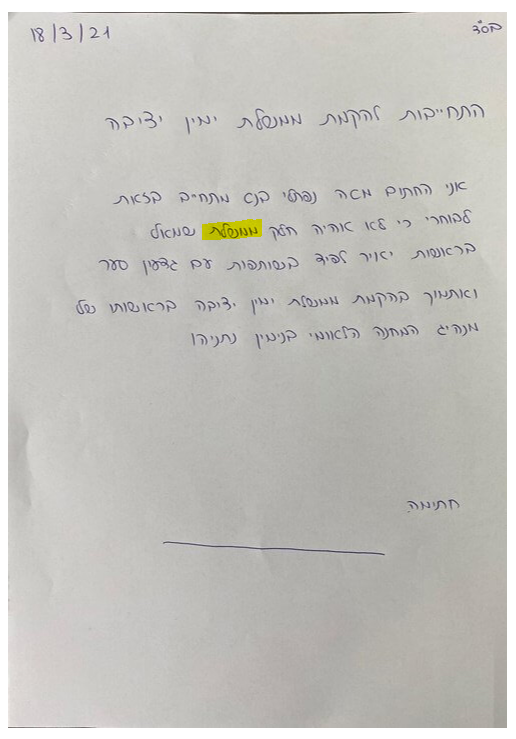 18/3/21 בס"ד
התחייבות להקמת ממשלת ימין יציבה
אני החתום מטה נפתלי בנט מתחייב בזאת
לבוחרי כי לא אהיה חלק ממשלת שמאל
בראשות יאיר לפיד בשותפות עם גדעון סער
ואתמוך בהקמת ממשלת ימין יציבה בראשותו של
מנהיג המחנה הלאומי בנימין נתניהו
חתימה